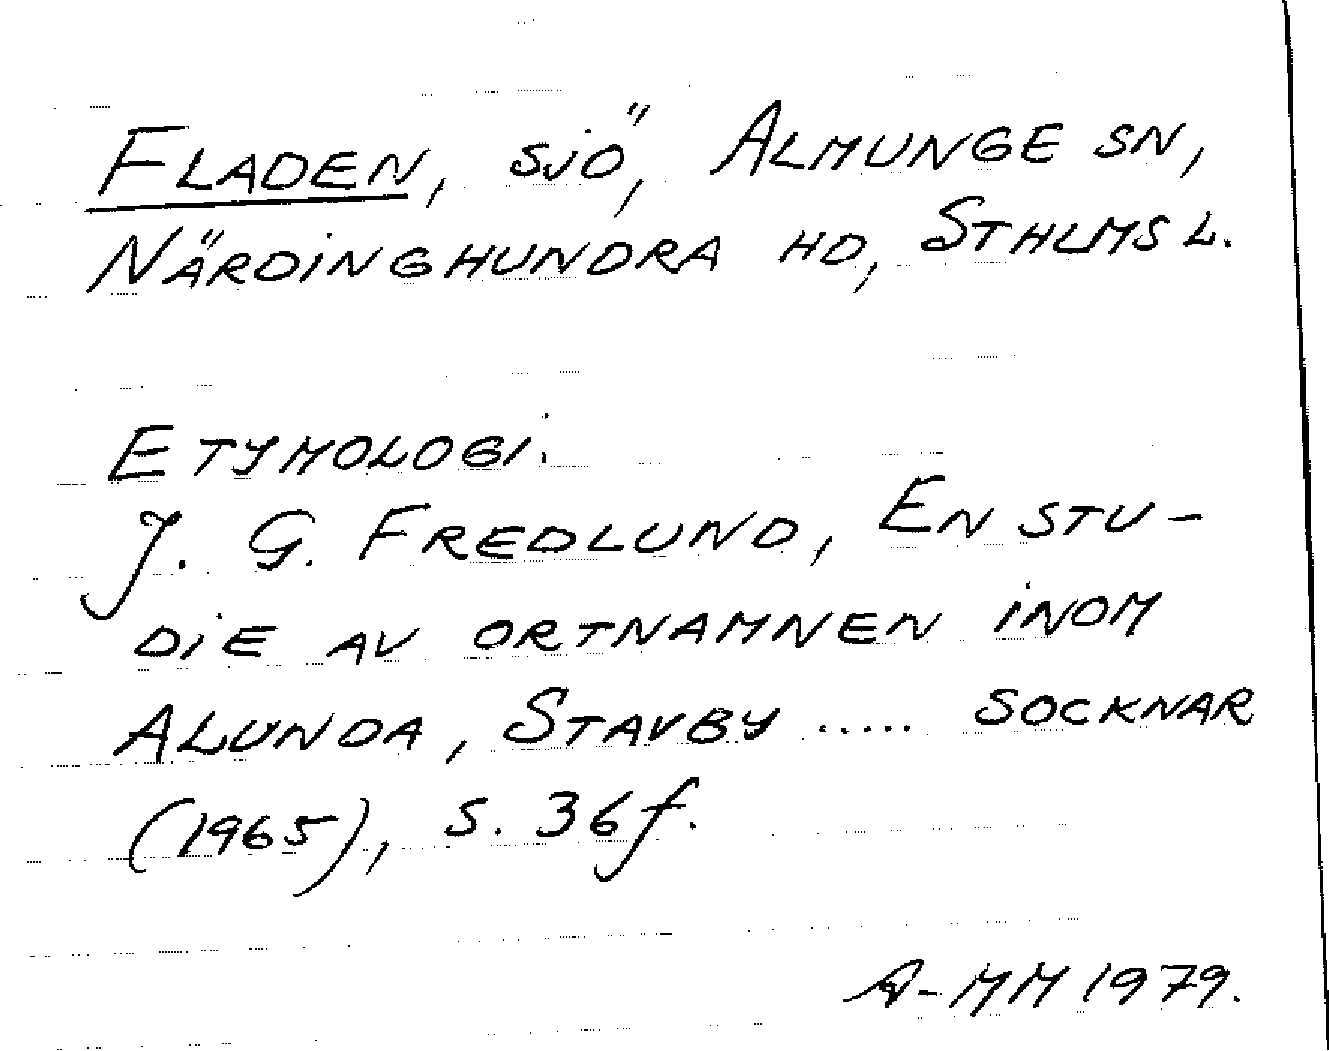 FLADEN, SJÖ, ALMUNGE SN,
NÄRDINGHUNDRA HD, STHLMS L.
ETYMOLOGI.
J. G. FREDLUND, EN STU-
DIE AV ORTNAMNEN INOM
ALUNDA, STAVBY ..... SOCKNAR
(1965), S. 36f.
A-MM 1979.